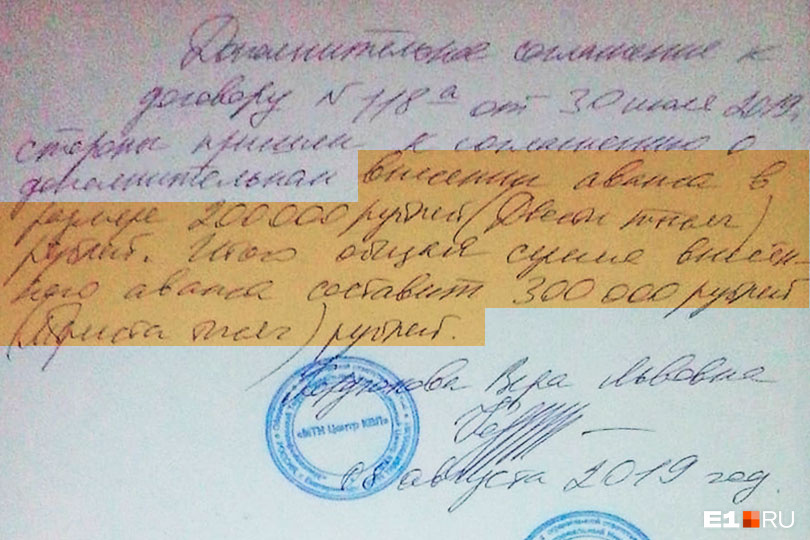 Дополнительное соглашение к
договору N 118 а от 30 июля 2019г.
стороны пришли к соглашению о
дополнительном внесении аванса в
размере 200000 рублей (Двести тысяч)
рублей. Итого общая сумма внесен-
ного аванса составит 300 000 рублей
(Триста тысяч) рублей.
Вера Львовна
«МТН Центр КВП»
08 августа 2019 год.
E1.RU